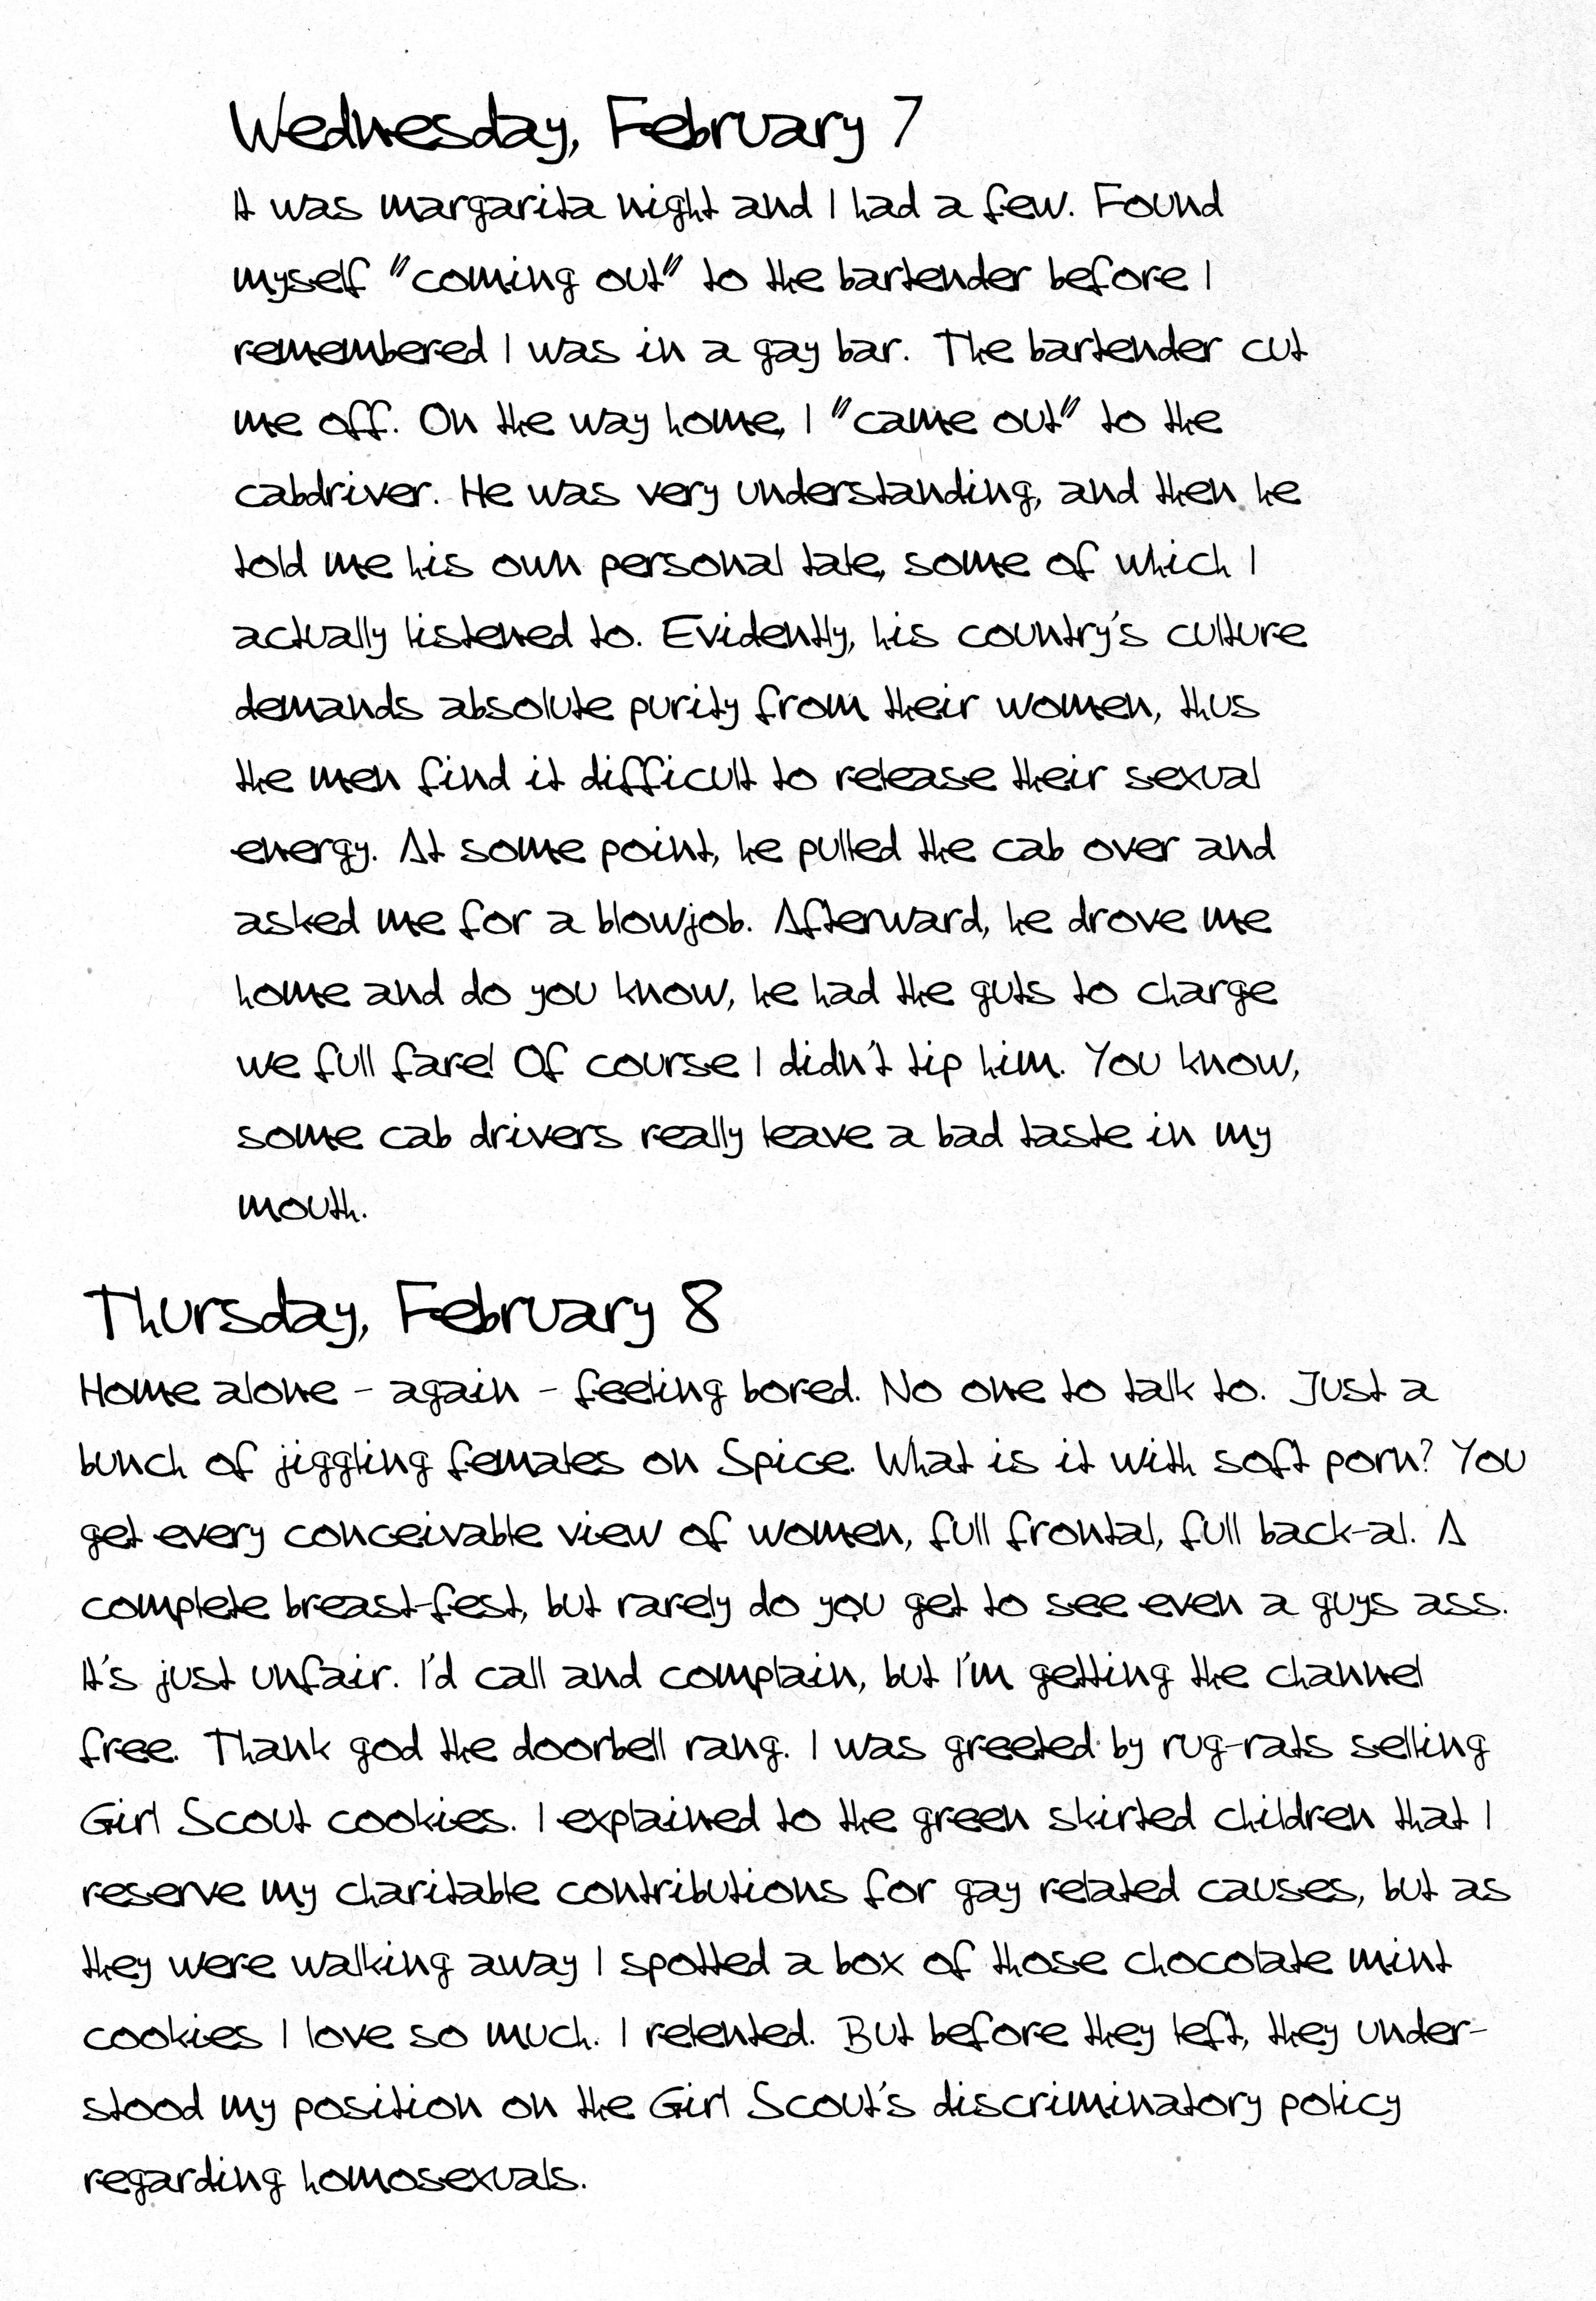 Wednesday, February 7
It was margarita night and I had a few. Found
myself "coming out" to the bartender before I
remembered I was in a gay bar. The bartender cut
me off. On the way home, I "came out" to the
cabdriver. He was very understanding, and then he
told me his own personal tale, some of which I
actually listened to. Evidently, his country's culture
demands absolute purity from their women, thus
the men find it difficult to release their sexual
energy. At some point, he pulled the cab over and
asked me for a blowjob. Afterward, he drove me
home and do you know, he had the guts to charge
we full fare! Of course I didn't tip him. You know,
some cab drivers really leave a bad taste in my
mouth.
Thursday, February 8
Home alone - again - feeling bored. No one to talk to. Just a
bunch of jiggling females on Spice. What is it with soft porn? You
get every conceivable view of women, full frontal, full back-al. A
complete breast-fest, but rarely do you get to see even a guys ass.
It's just unfair. I'd call and complain, but I'm getting the channel
free. Thank god the doorbell rang. I was greeted by rug-rats selling
Girl Scout cookies. I explained to the green skirted children that I
reserve my charitable contributions for gay related causes, but as
they were walking away I spotted a box of those chocolate mint
cookies I love so much. I relented. But before they left, they under-
stood my position on the Girl Scout's discriminatory policy
regarding homosexuals.